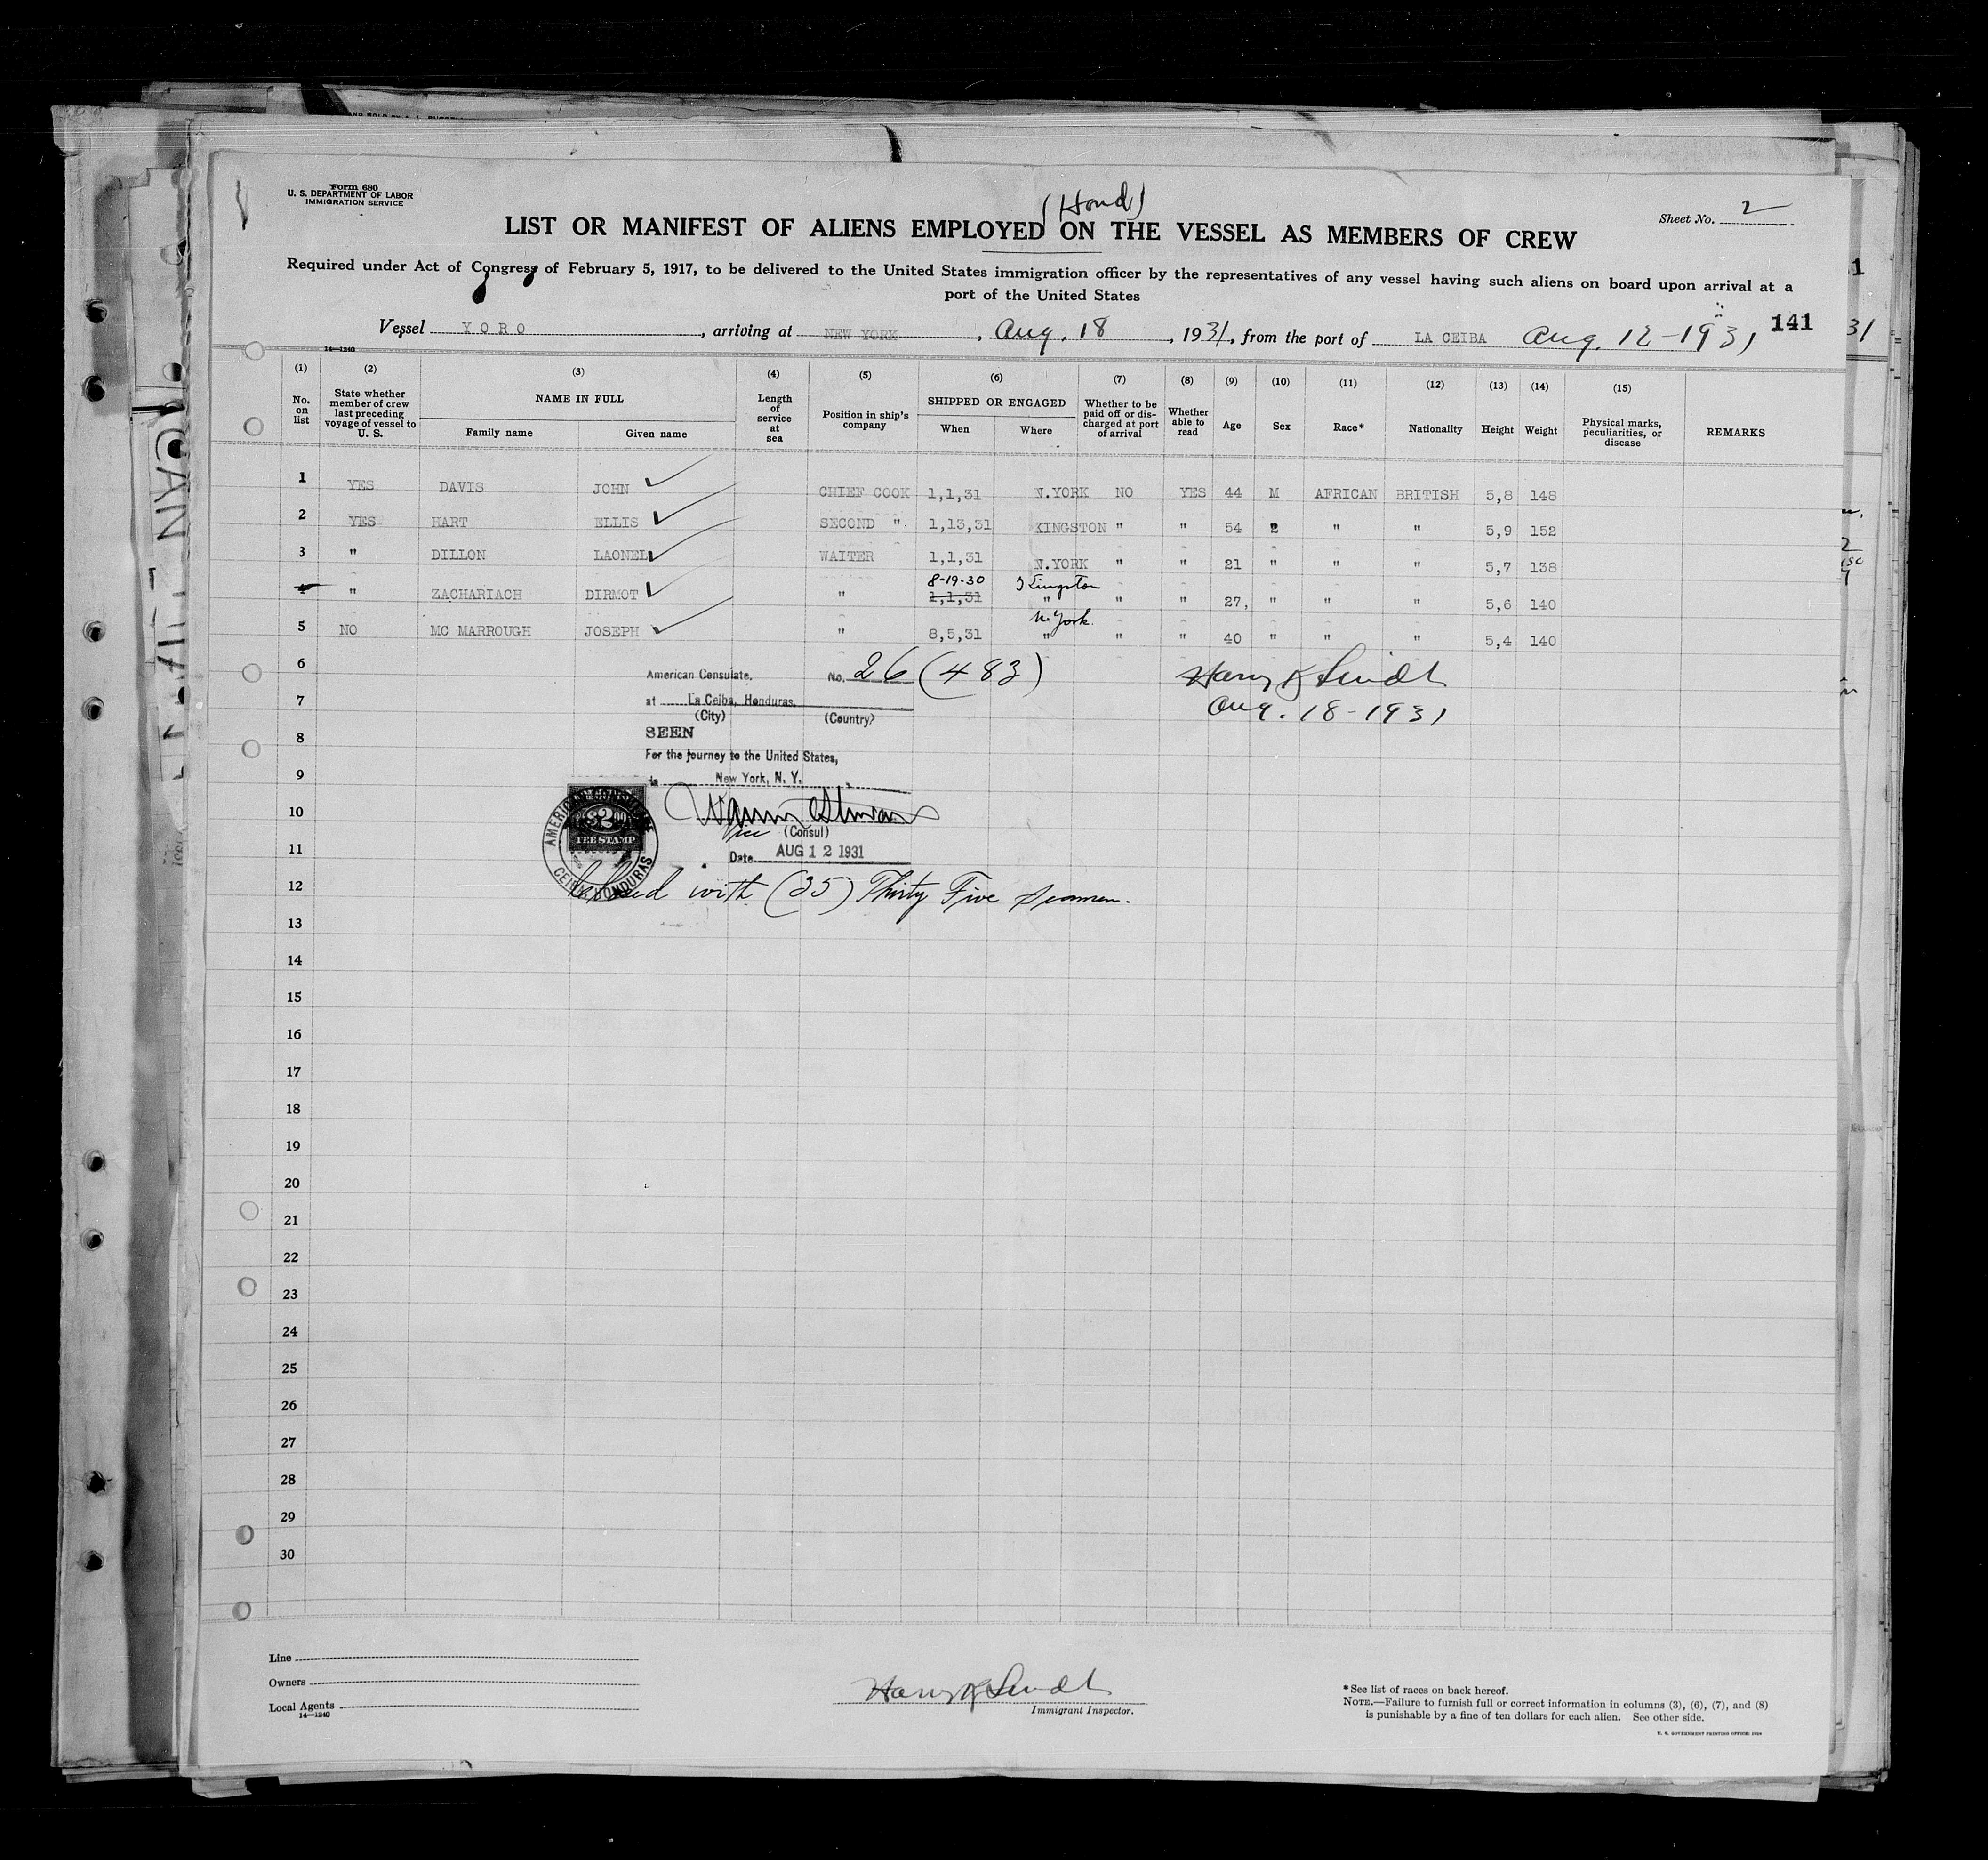 Form 680
U. S. DEPARTMENT OF LABOR
IMMIGRATION SERVICE
(Hond)
Sheet No. 2
LIST OR MANIFEST OF ALIENS EMPLOYED ON THE VESSEL AS MEMBERS OF CREW
Required under Act of Congress of February 5, 1917, to be delivered to the United States immigration officer by the representatives of any vessel having such aliens on board upon arrival at a
port of the United States
Vessel YORO, arriving at NEW YORK, Aug. 18, 1931, from the port of LA CEIBA Aug. 12-1931
141
14—1240
(1) (2) (3) (4) (5) (6) (7) (8) (9) (10) (11) (12) (13) (14) (15)
No. on list
State whether member of crew last preceding voyage of vessel to U. S.
NAME IN FULL
Family name Given name
Length of service at sea
Position in ship's company
SHIPPED OR ENGAGED
When Where
Whether to be paid off or discharged at port of arrival
Whether able to read
Age Sex Race* Nationality Height Weight
Physical marks, peculiarities, or disease
REMARKS
1 YES DAVIS JOHN CHIEF COOK 1,1,31 N.YORK NO YES 44 M AFRICAN BRITISH 5,8 148
2 YES HART ELLIS SECOND " 1,13,31 KINGSTON " " 54 " " 5,9 152
3 " DILLON LAONEL WAITER 1,1,31 N.YORK " " 21 " " " 5,7 138
8-19-30 Kingston
4 " ZACHARIACH DIRMOT " 1,1,31 " " " 27, " " " 5,6 140
N. York.
5 NO MC MARROUGH JOSEPH " 8,5,31 " " " 40 " " " 5,4 140
6
American Consulate, No. 26 (483)
Harry
7
at La Ceiba, Honduras,
(City) (Country)
Aug. 18-1931
8
SEEN
For the journey to the United States,
9
New York, N. Y.
10
AMERICAN CONSULATE
CEIBA HONDURAS
FEE STAMP
Vice (Consul)
11
Date AUG 12 1931
12
with (35) Thirty Five Seamen.
13
14
15
16
17
18
19
20
21
22
23
24
25
26
27
28
29
30
Line
Owners
Local Agents
14—1240
Harry
Immigrant Inspector.
*See list of races on back hereof.
NOTE.—Failure to furnish full or correct information in columns (3), (6), (7), and (8)
is punishable by a fine of ten dollars for each alien. See other side.